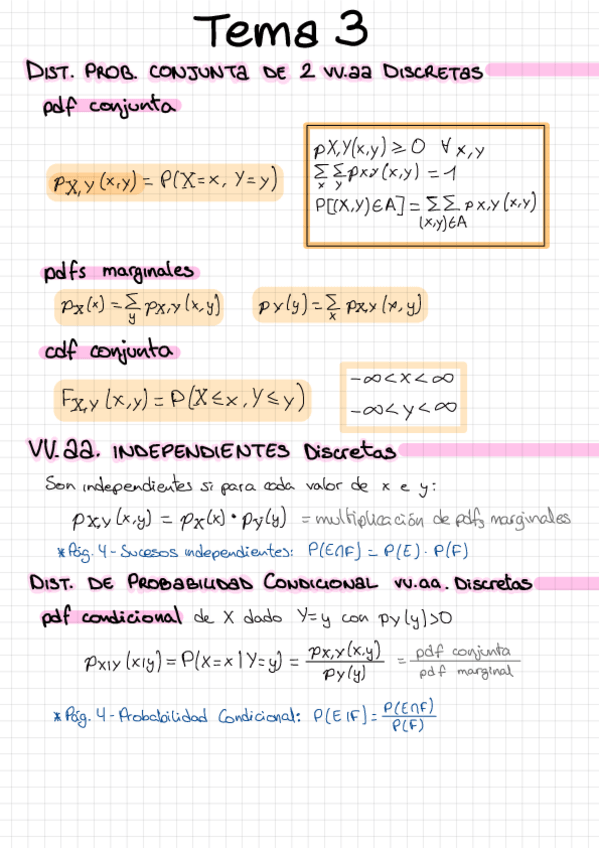 Tema 3
DIST. PROB. CONJUNTA DE 2 VV.aa DISCRETAS
pdf conjunta
pX,Y(x,y) = P(X=x, Y=y)
pX,Y(x,y) ≥ 0 ∀ x,y
∑x ∑y pX,Y(x,y) = 1
P[(X,Y)∈A] = ∑∑(x,y)∈A pX,Y(x,y)
pdfs marginales
pX(x) = ∑y pX,Y(x,y)
pY(y) = ∑x pX,Y(x,y)
cdf conjunta
FX,Y(x,y) = P(X≤x, Y≤y)
-∞<x<∞
-∞<y<∞
VV.aa. INDEPENDIENTES Discretas
Son independientes si para cada valor de x e y:
pX,Y(x,y) = pX(x) · pY(y) = multiplicación de pdfs marginales
* Pág. 4 - Sucesos independientes: P(E∩F) = P(E) · P(F)
DIST. DE PROBABILIDAD CONDICIONAL vv.aa. Discretas
pdf condicional de X dado Y=y con pY(y)>0
pX|Y(x|y) = P(X=x | Y=y) = pX,Y(x,y) / pY(y) = pdf conjunta / pdf marginal
* Pág. 4 - Probabilidad Condicional: P(E|F) = P(E∩F) / P(F)